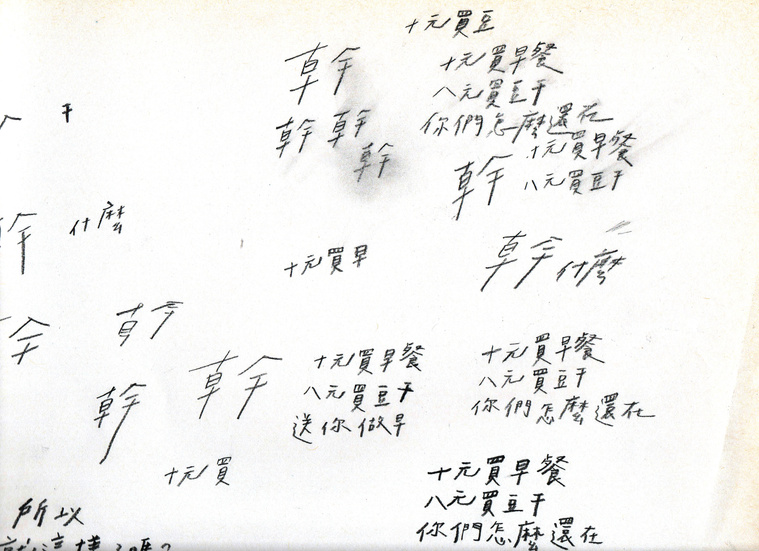 十元買豆
十元買早餐
八元買豆干
你們怎麼還在
幹
幹 幹
幹
干
十元買早餐
八元買豆干
幹
什麼
幹 什麼
十元買早
幹
幹
十元買早餐
八元買豆干
送你做早
十元買早餐
八元買豆干
你們怎麼還在
幹
十元買
十元買早餐
八元買豆干
你們怎麼還在
所以
就這樣了嗎?